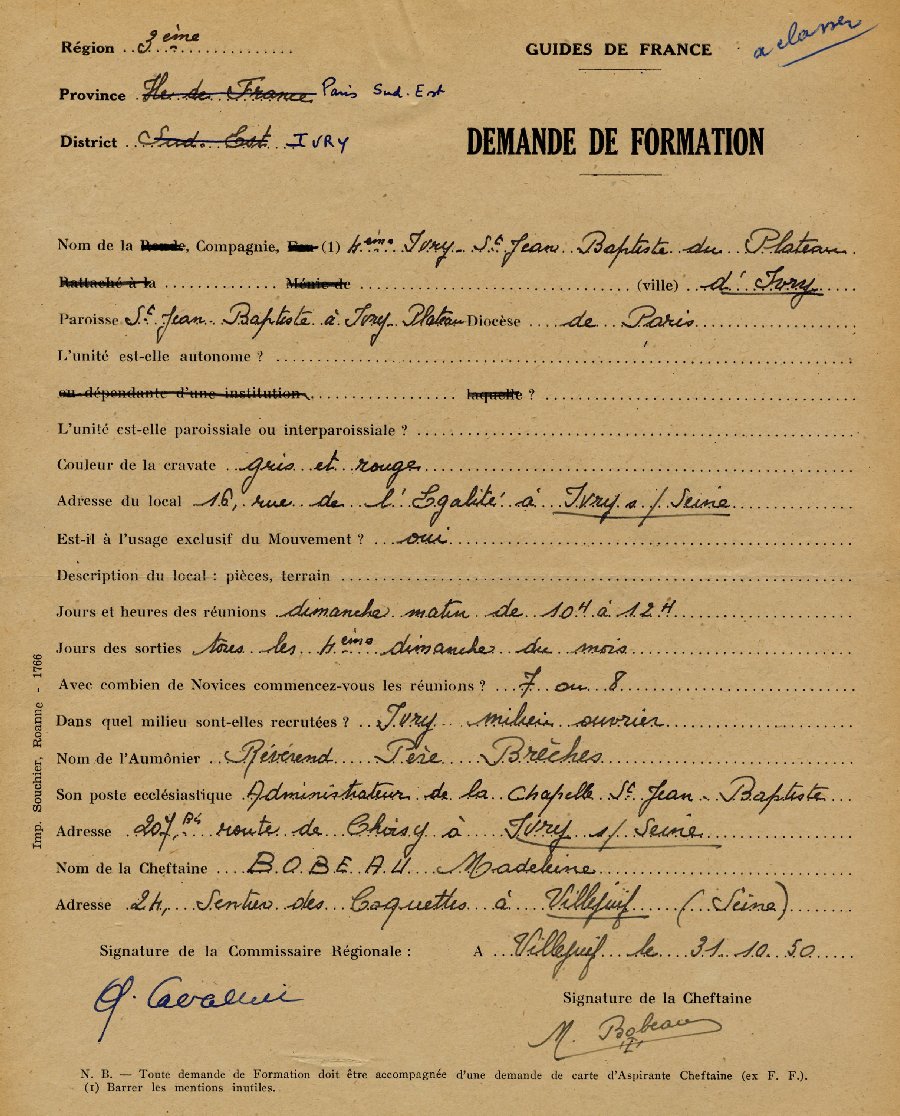 a classer
Région 3ème
GUIDES DE FRANCE
Province Ile de France Paris Sud. Est
District Sud. Est IVRY
DEMANDE DE FORMATION
Nom de la Ronde, Compagnie, Feu (1) 4ème Ivry St Jean Baptiste du Plateau
Rattaché à la Ménie de (ville) d'Ivry
Paroisse St Jean Baptiste à Ivry Plateau Diocèse de Paris
L'unité est-elle autonome ?
ou dépendante d'une institution laquelle ?
L'unité est-elle paroissiale ou interparoissiale ?
Couleur de la cravate gris et rouge
Adresse du local 16, rue de l'Egalité à Ivry s/Seine
Est-il à l'usage exclusif du Mouvement ? oui
Description du local : pièces, terrain
Jours et heures des réunions dimanche matin de 10H à 12H
Jours des sorties tous les 4ème dimanche du mois
Avec combien de Novices commencez-vous les réunions ? 7 ou 8
Dans quel milieu sont-elles recrutées ? Ivry milieu ouvrier
Nom de l'Aumônier Révérend Père Brèches
Son poste ecclésiastique Administrateur de la chapelle St Jean-Baptiste
Adresse 207, Bis route de Choisy à Ivry s/Seine
Nom de la Cheftaine BOBEAU Madeleine
Adresse 24, Sentier des Coquettes à Villejuif (Seine)
Signature de la Commissaire Régionale :
A Villejuif le 31.10.50
Signature de la Cheftaine
M. Bobeau
N. B. — Toute demande de Formation doit être accompagnée d'une demande de carte d'Aspirante Cheftaine (ex F. F.).
(1) Barrer les mentions inutiles.
Imp. Souchier, Roanne - 1766